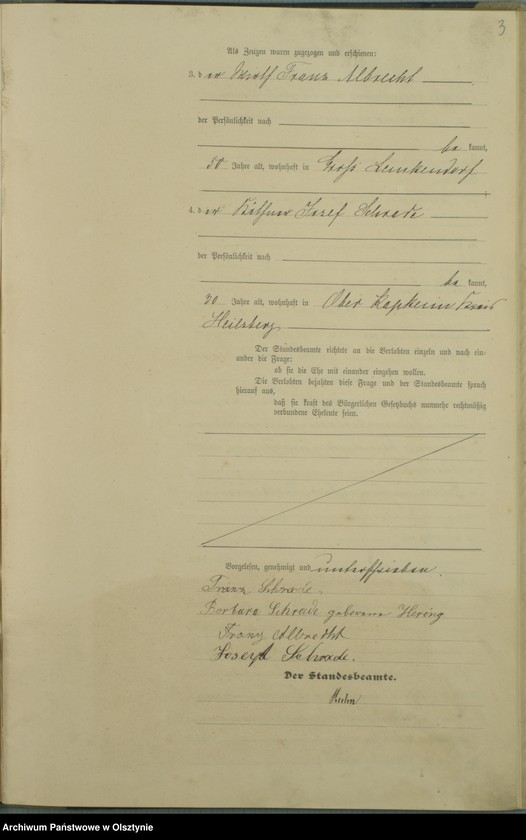 3
Als Zeugen waren zugezogen und erschienen:
3. der Wirth Franz Albrecht
der Persönlichkeit nach
be kannt,
50 Jahre alt, wohnhaft in Groß Lemkendorf
4. der Käthner Josef Schrade
der Persönlichkeit nach
be kannt,
30 Jahre alt, wohnhaft in Ober Kapkeim Kreis
Heilsberg
Der Standesbeamte richtete an die Verlobten einzeln und nach ein-
ander die Frage:
ob sie die Ehe mit einander eingehen wollen.
Die Verlobten bejahten diese Frage und der Standesbeamte sprach
hierauf aus,
daß sie kraft des Bürgerlichen Gesetzbuchs nunmehr rechtmäßig
verbundene Eheleute seien.
Vorgelesen, genehmigt und unterschrieben.
Franz Schrade.
Barbara Schrade geborene Hering
Franz Albrecht
Joseph Schrade.
Der Standesbeamte.
Archiwum Państwowe w Olsztynie